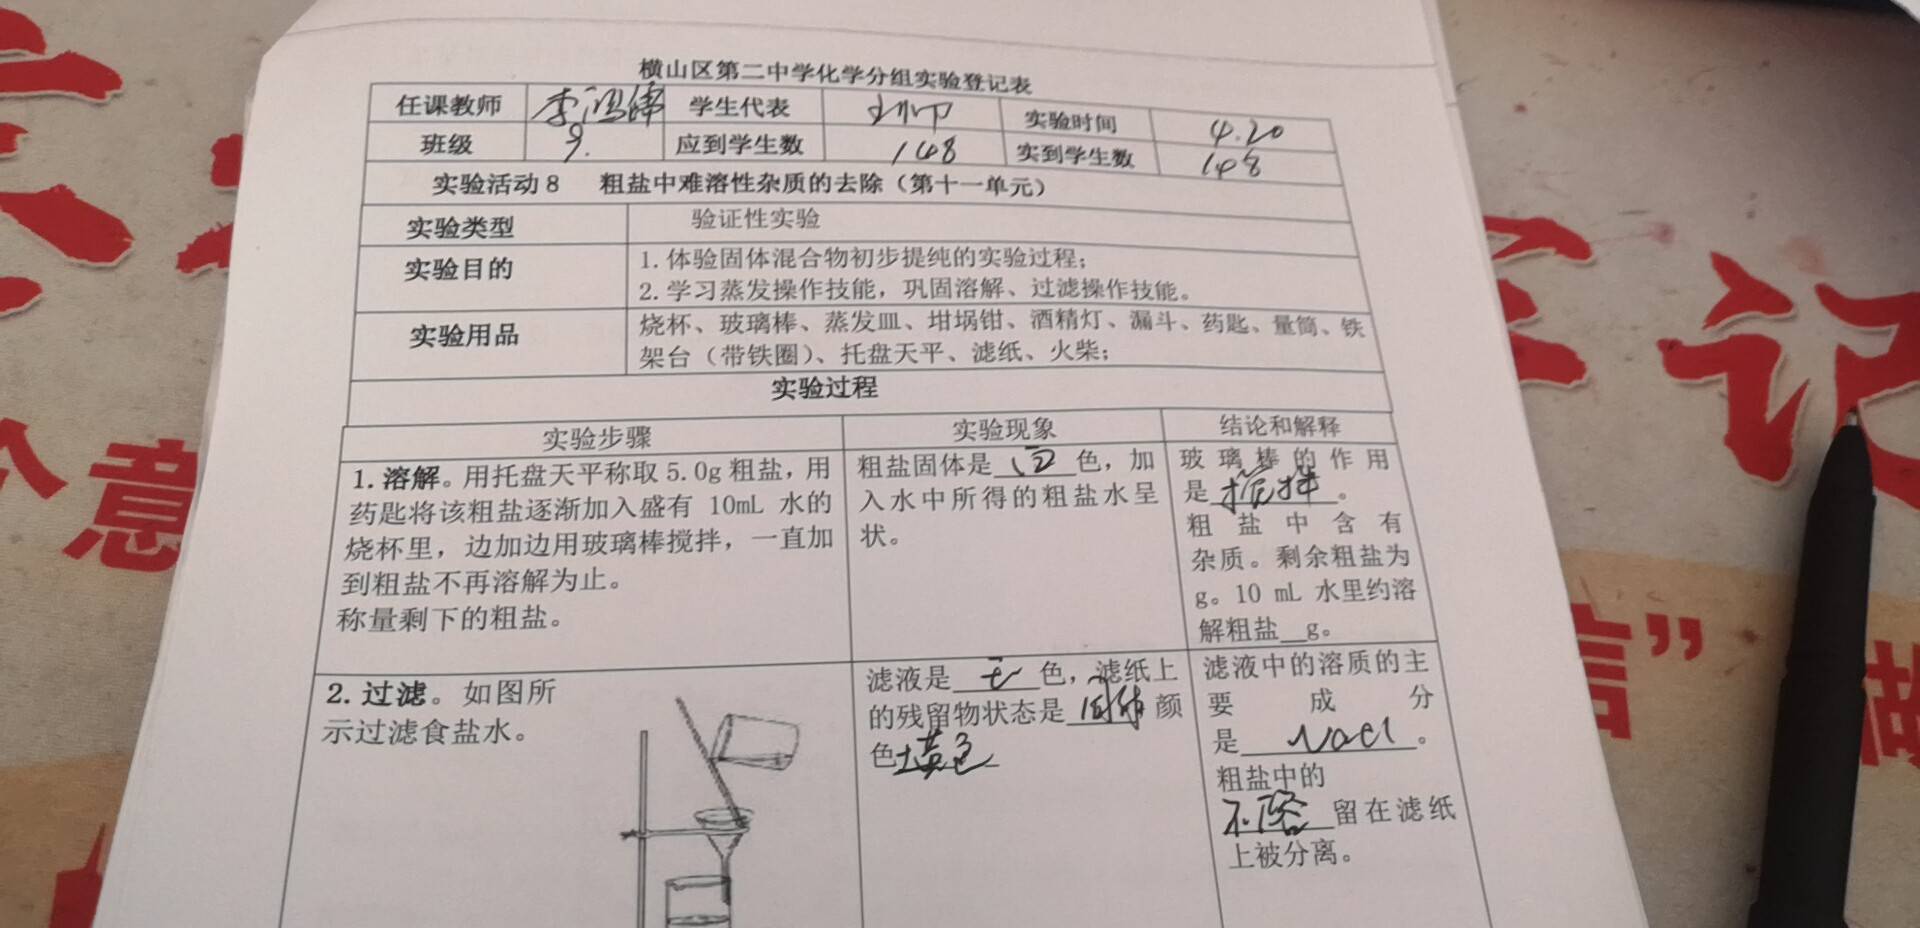 横山区第二中学化学分组实验登记表
任课教师 李鸿伟 学生代表 实验时间 4.20
班级 9. 应到学生数 148 实到学生数 148
实验活动8 粗盐中难溶性杂质的去除（第十一单元）
实验类型 验证性实验
实验目的 1.体验固体混合物初步提纯的实验过程；
2.学习蒸发操作技能，巩固溶解、过滤操作技能。
实验用品 烧杯、玻璃棒、蒸发皿、坩埚钳、酒精灯、漏斗、药匙、量筒、铁
架台（带铁圈）、托盘天平、滤纸、火柴；
实验过程
实验步骤 实验现象 结论和解释
1.溶解。用托盘天平称取 5.0g 粗盐，用
药匙将该粗盐逐渐加入盛有 10mL 水的
烧杯里，边加边用玻璃棒搅拌，一直加
到粗盐不再溶解为止。
称量剩下的粗盐。
粗盐固体是 白 色，加
入水中所得的粗盐水呈
状。
玻璃棒的作用
是 搅拌 。
粗盐中含有
杂质。剩余粗盐为
g。10 mL 水里约溶
解粗盐__g。
2.过滤。如图所
示过滤食盐水。
滤液是 无 色，滤纸上
的残留物状态是 固体 颜
色 土黄色
滤液中的溶质的主
要成分
是 NaCl 。
粗盐中的
不溶 留在滤纸
上被分离。
记
意
信”
做